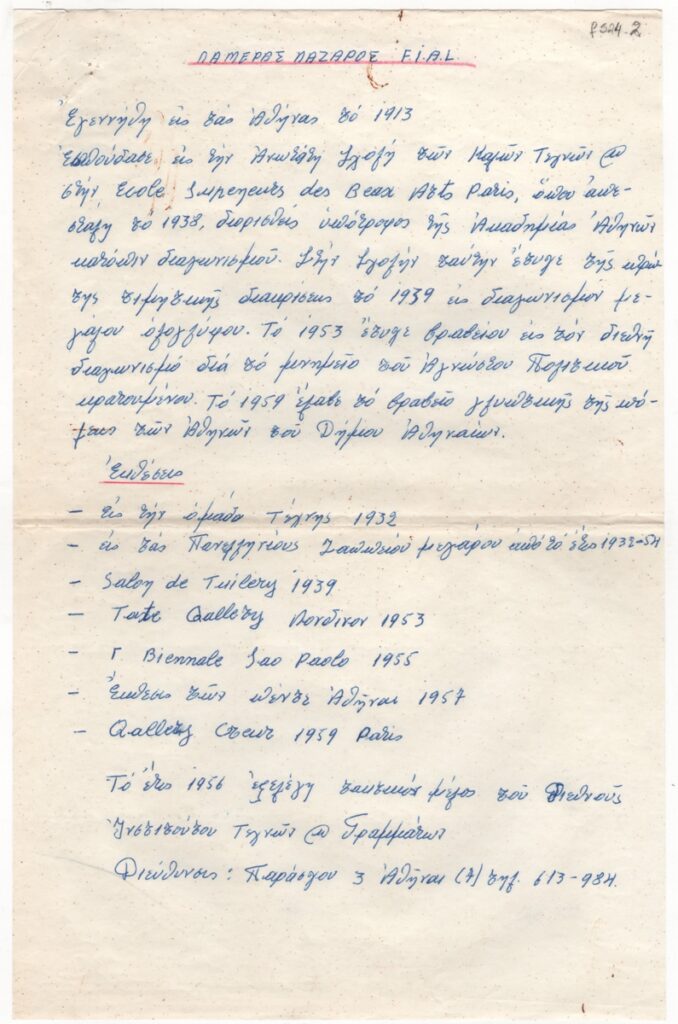 PS24-2
ΛΑΜΕΡΑΣ ΛΑΖΑΡΟΣ F.I.A.L.
Ἐγεννήθη εἰς τάς Ἀθήνας τό 1913
Ἐσπούδασε εἰς τήν Ἀνωτάτη Σχολή τῶν Καλῶν Τεχνῶν @
στήν Ecole Superieurs des Beax Arts Paris, ὅπου ἀπε-
στάλη τό 1938, διορισθείς ὑπότροφος τῆς Ἀκαδημίας Ἀθηνῶν
κατόπιν διαγωνισμοῦ. Στήν Σχολήν ταύτην ἔτυχε τῆς πρώ-
της τιμητικῆς διακρίσεως τό 1939 εἰς διαγωνισμόν με-
γάλου ὁλογλύφου. Τό 1953 ἔτυχε βραβείου εἰς τόν διεθνῆ
διαγωνισμό διά τό μνημεῖο τοῦ Ἀγνώστου Πολιτικοῦ
κρατουμένου. Τό 1959 ἔλαβε τό βραβεῖο γλυπτικῆς τῆς πό-
λεως τῶν Ἀθηνῶν τοῦ Δήμου Ἀθηναίων.
Ἐκθέσεις
– εἰς τήν ὁμάδα Τέχνης 1932
– εἰς τάς Πανελληνίους Ζαππείου μεγάρου ἀπό τό ἔτος 1938-54
– Salon de Tuilery 1939
– Tate Gallery Λονδίνον 1953
– Γ. Biennale Sao Paolo 1955
– Ἔκθεσις τῶν πέντε Ἀθῆναι 1957
– Gallery 1959 Paris
Τό ἔτος 1956 ἐξελέγη τακτικόν μέλος τοῦ Διεθνοῦς
Ἰνστιτούτου Τεχνῶν @ Γραμμάτων
Διεύθυνσις: Παράσχου 3 Ἀθῆναι (7) τηλ. 613-984.